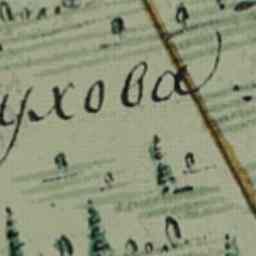 ухова